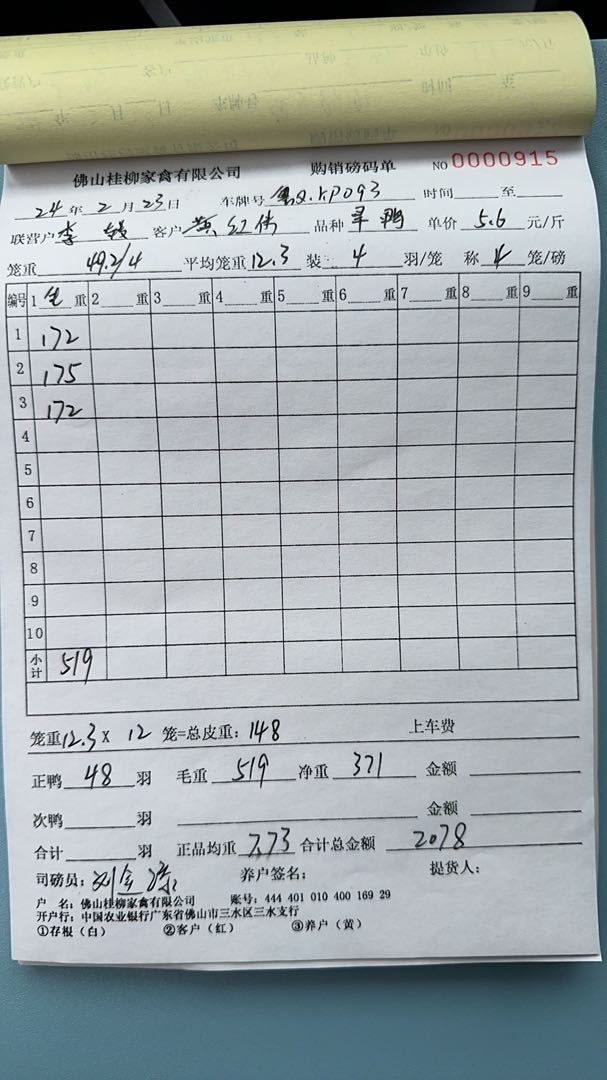 佛山桂柳家禽有限公司 购销磅码单 NO 0000915
24 年 2 月 23 日 车牌号 P093 时间 至
联营户 李 客户 黄红伟 品种 旱鸭 单价 5.6 元/斤
笼重 49.2/4 平均笼重 12.3 装: 4 羽/笼 称 4 笼/磅
编号 1 重 2 重 3 重 4 重 5 重 6 重 7 重 8 重 9 重
1 172
2 175
3 172
4
5
6
7
8
9
10
小计 519
笼重 12.3 x 12 笼=总皮重: 148 上车费
正鸭 48 羽 毛重 519 净重 371 金额
次鸭 羽 金额
合计 羽 正品均重 7.73 合计总金额 2078
司磅员: 养户签名: 提货人:
户 名: 佛山桂柳家禽有限公司 账号: 444 401 010 400 169 29
开户行: 中国农业银行广东省佛山市三水区三水支行
①存根（白） ②客户（红） ③养户（黄）